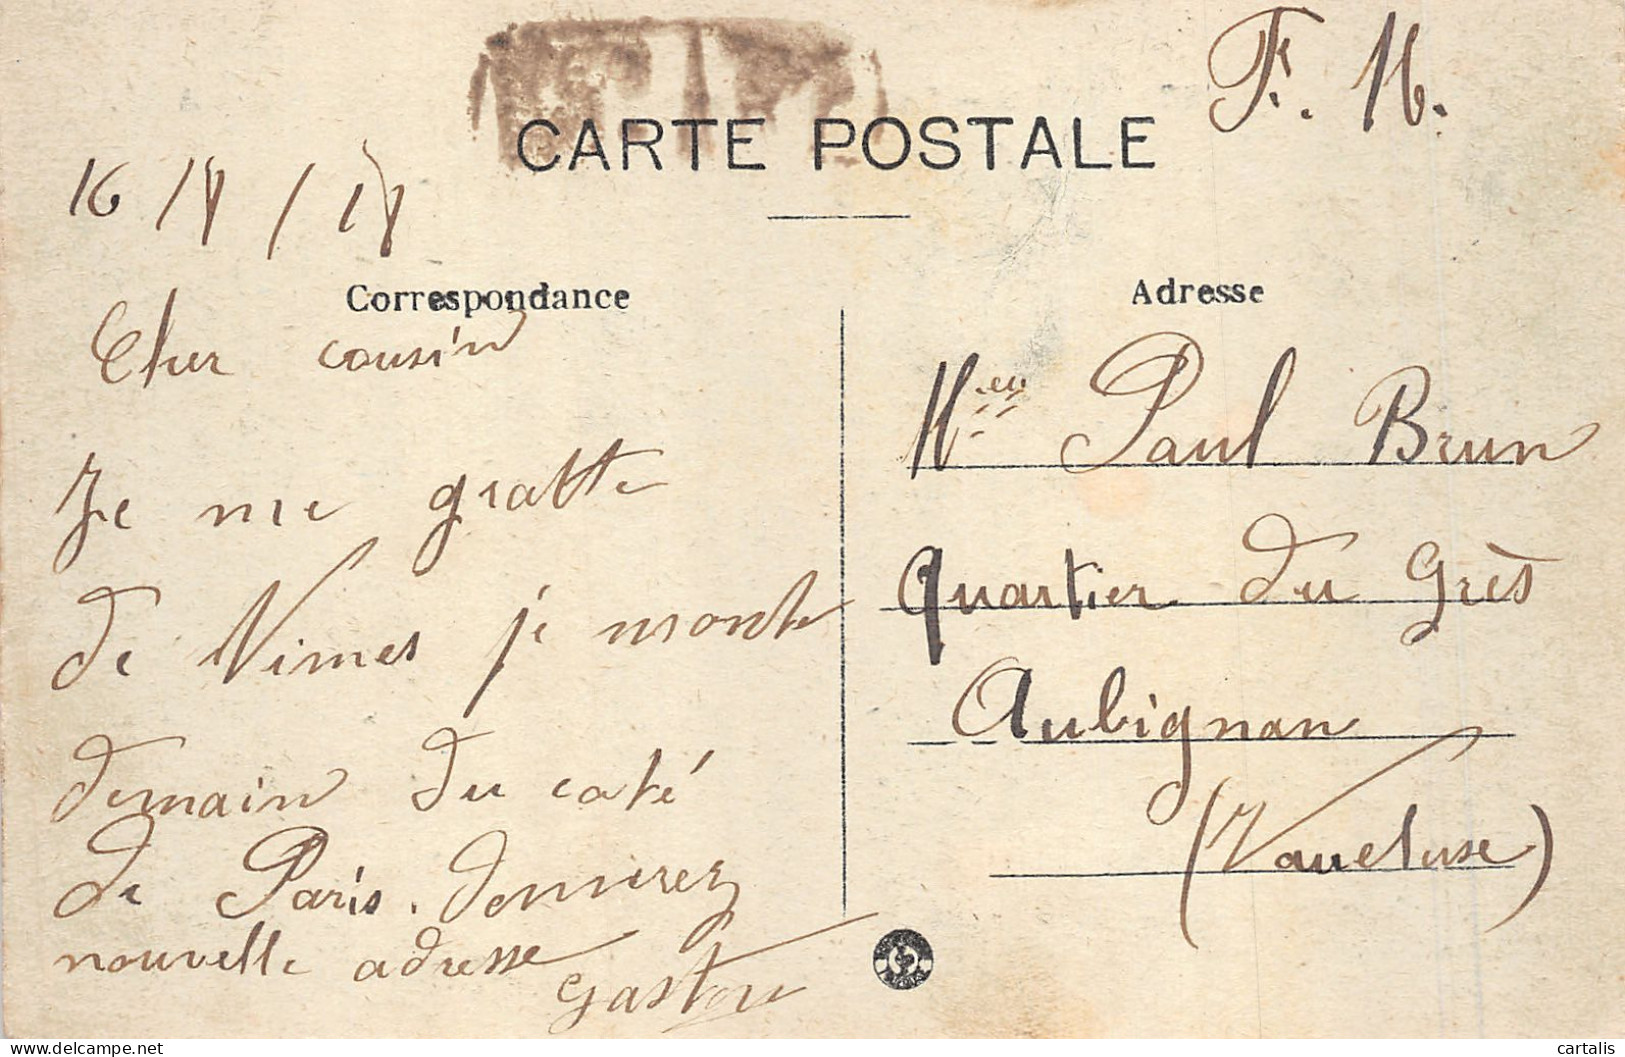 F. M.
CARTE POSTALE
16 / V / 18
Correspondance
Adresse
Cher cousin
Je me gratte
de Nimes je monte
demain du caté
de Paris. donnerez
nouvelle adresse
Gaston
Paul Brun
Quartier du Grès
Aubignan
(Vaucluse)
cartalis